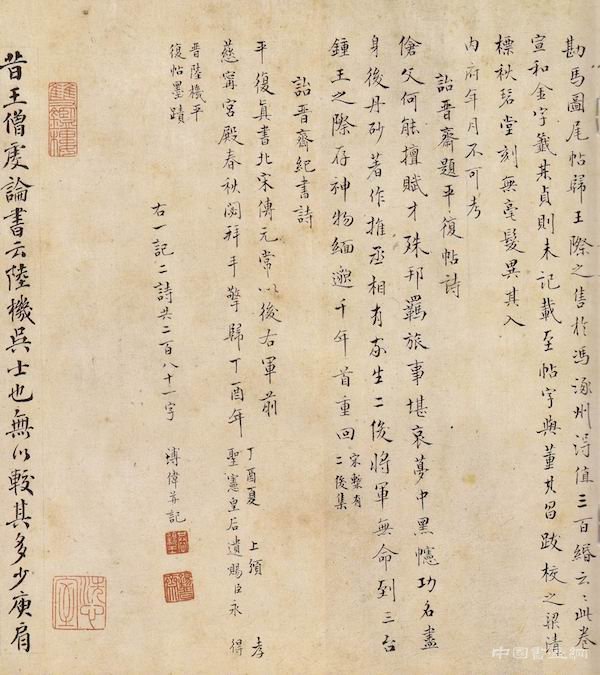 勘馬圖尾帖歸王際之售於馮涿州得值三百緡云云此卷
宣和金字籤某貞則未記載至帖字與董其昌跋校之梁清
標秋碧堂刻無毫髮異其入
內府年月不可考
詒晉齋題平復帖詩
傖父何能擅賦才殊邦羈旅事堪哀夢中黑幰功名盡
身後丹砂著作推丞相有家生二俊將軍無命到三台
鍾王之際存神物緬邈千年首重回宋槧有二俊集
詒晉齋紀書詩
平復真書北宋傳元常以後右軍前
慈寧宮殿春秋闋拜手擎歸丁酉年丁酉夏 上頒 孝聖憲皇后遺賜臣永 得
晉陸機平
復帖墨蹟
右一記二詩共二百八十一字 溥偉并記
昔王僧虔論書云陸機吳士也無以較其多少庾肩
中國書畫網